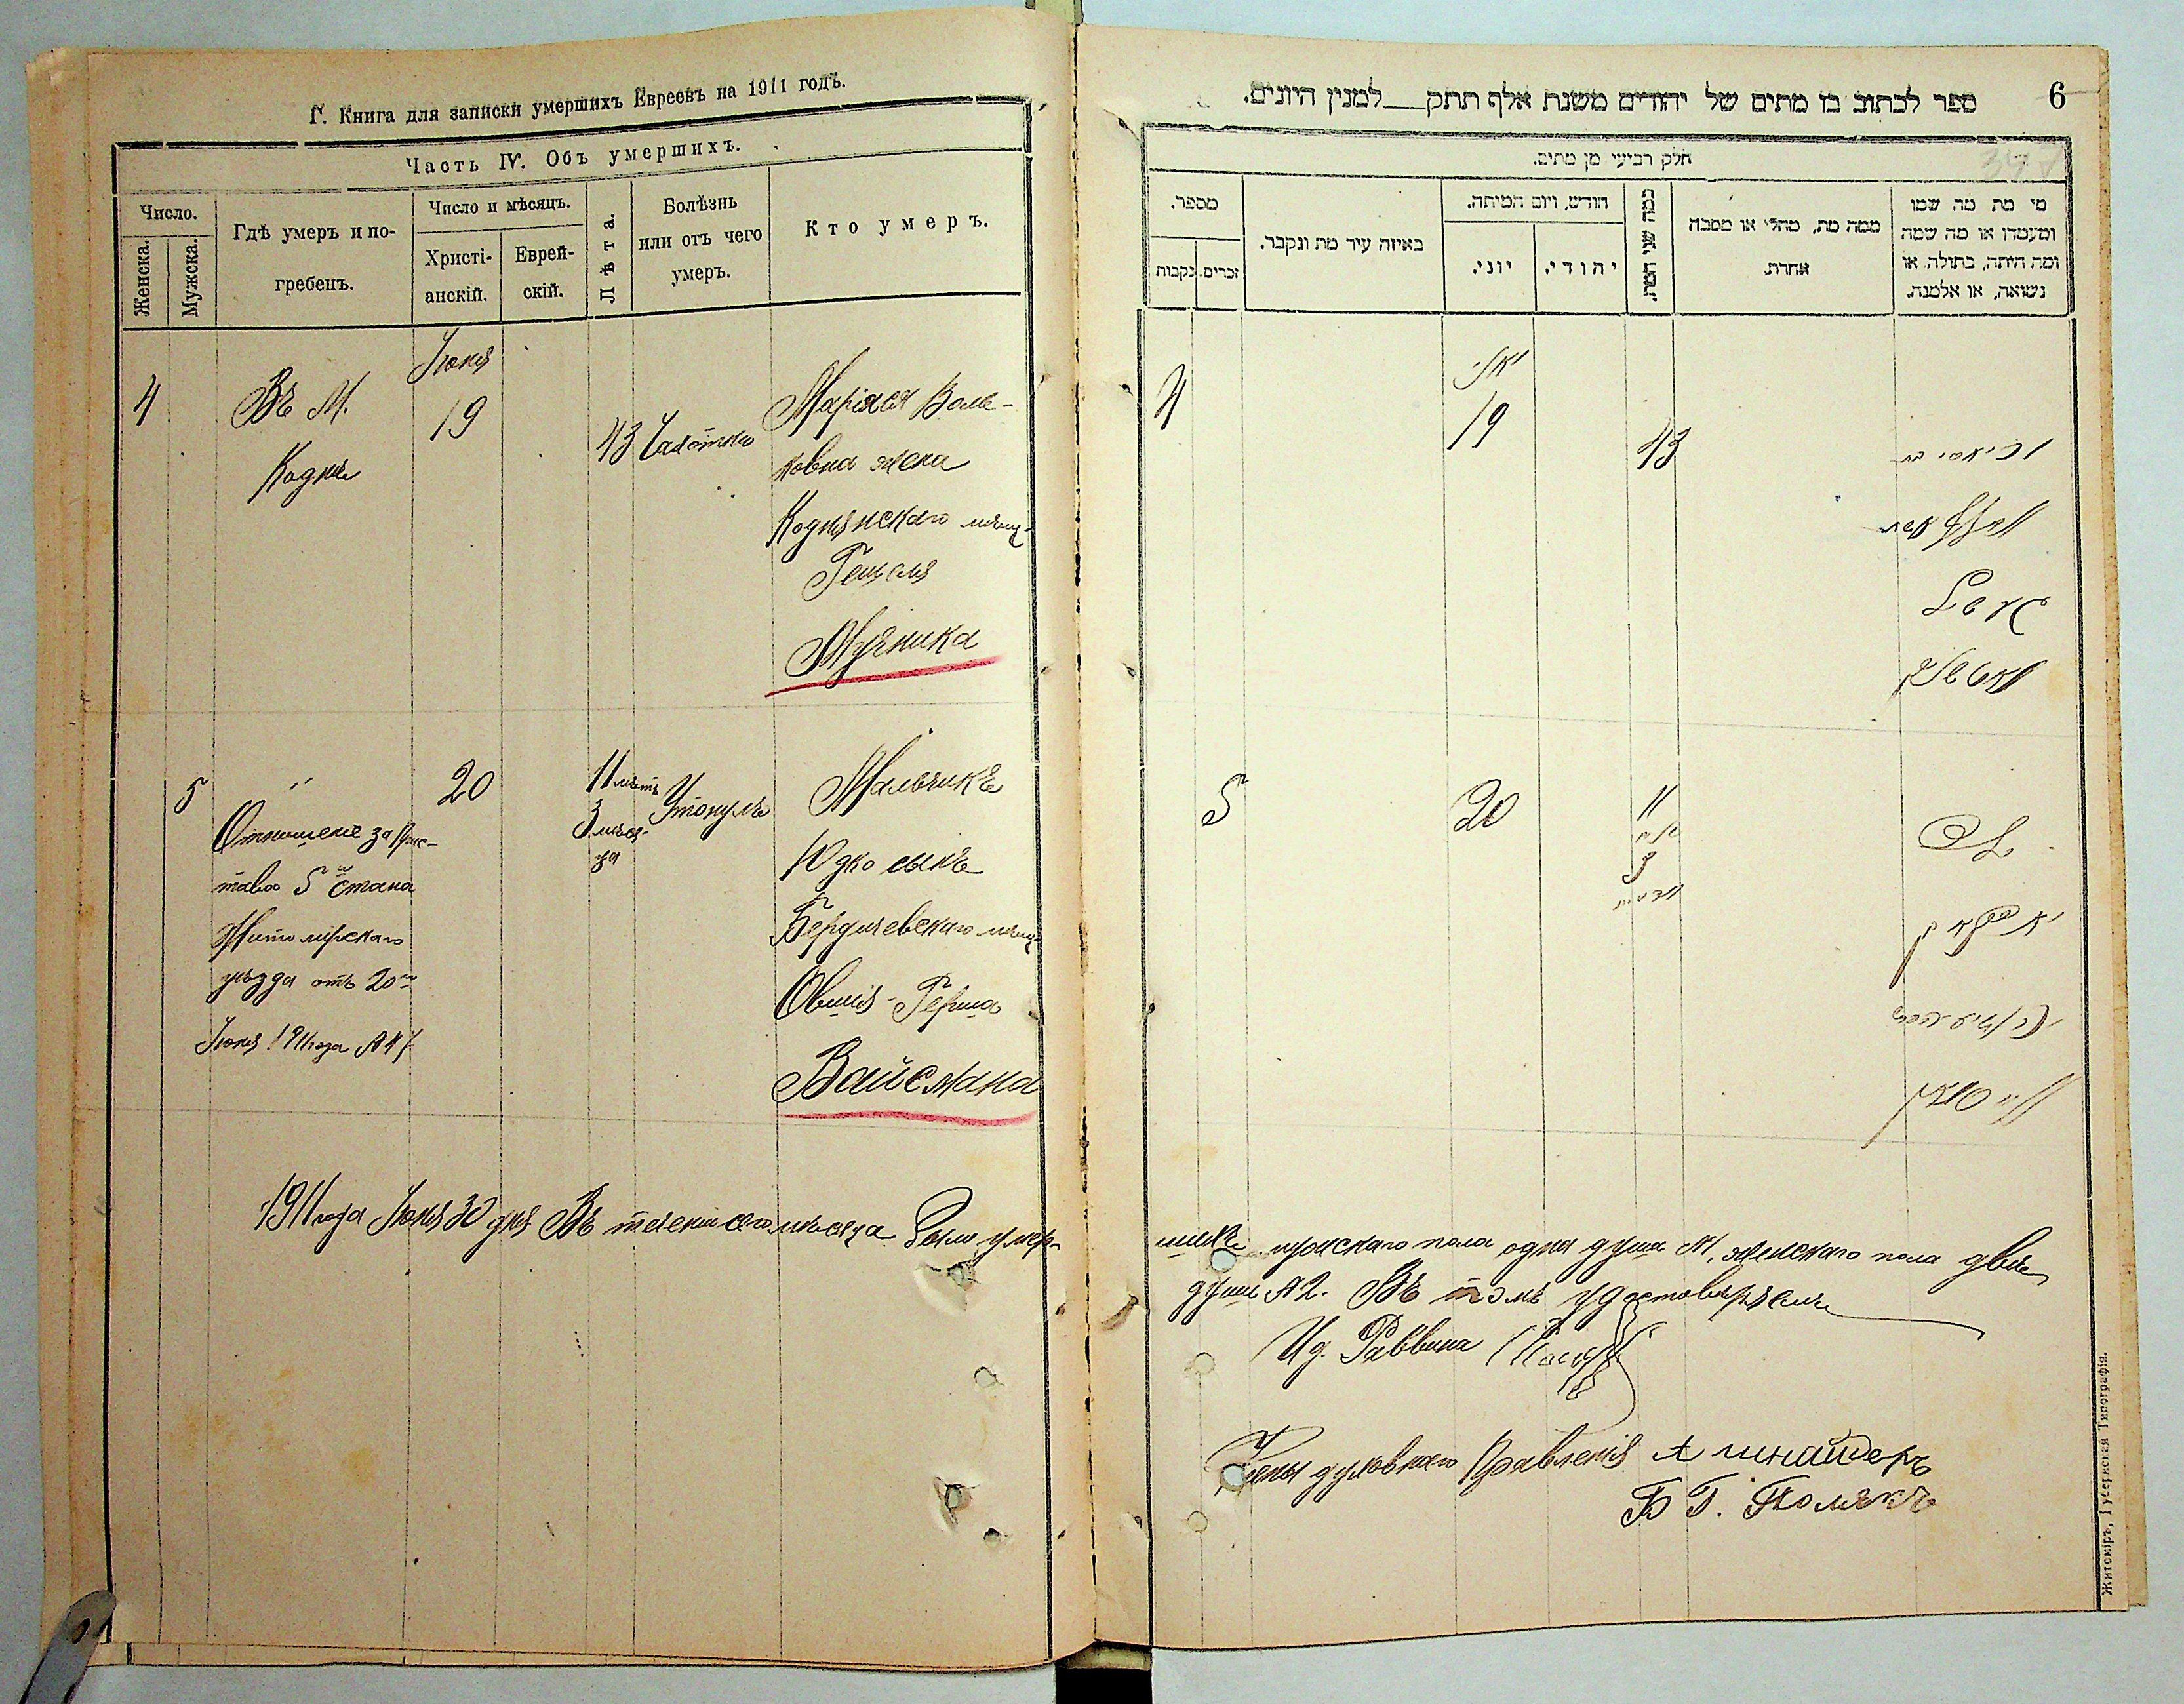 Г. Книга для записки умершихъ Евреевъ на 1911 годъ.
Часть IV. Объ умершихъ.
Число.
Женска.
Мужска.
Гдѣ умеръ и по-
гребенъ.
Число и мѣсяцъ.
Христі-
анскій.
Еврей-
скій.
Лѣта.
Болѣзнь
или отъ чего
умеръ.
Кто умеръ.
4
Въ М.
Кодне
Іюня
19
43
Чахотка
Маріася Воль-
ковна жена
Коднянскаго мѣщ.
Гецеля
Мучника
5
"
Отношеніе за При-
става 5 й Стана
Житомірскаго
уѣзда отъ 20 го
Іюня 1911 года
20
11 лѣтъ
3 мѣся-
ца
Утонулъ
Мальчикъ
Юдко сынъ
Бердичевскаго мѣщ.
Овшія-Герша
Вайсмана
1911 года Іюня 30 дня Въ теченіи сего мѣсяца было умер-
6
ספר לכתוב בו מתים של יהודים משנת אלף תתק למנין היונים.
חלק רביעי מן מתים.
מספר.
נקבות
זכרים.
באיזה עיר מת ונקבר.
חודש, ויום המיתה.
יוני.
יהודי.
כמה שני המת.
ממה מת, מחלי או מסבה
אחרת.
מי מת מה שמו
ומעמדו או מה שמה
ומה היתה, בתולה או
נשואה, או אלמנה.
4
19
43
5
20
11
3
вайסמאן
шихъ мужскаго пола одна душа №1, женскаго пола двѣ
души №2. Въ томъ удостовѣряемъ
Ид. Раввина
Члены духовнаго Правленія А Шнайдеръ
Б Г. Полякъ
Житоміръ, Губернская Типографія.